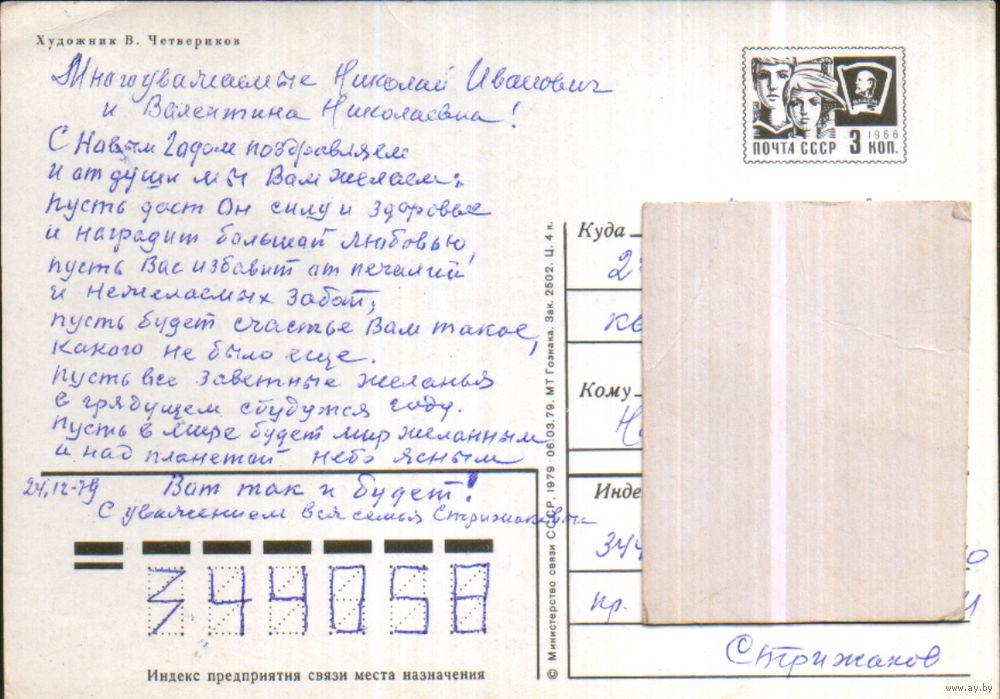 Художник В. Четвериков
Многоуважаемые Николай Иванович
и Валентина Николаевна!
С Новым Годом поздравляем
и от души мы Вам желаем:
пусть даст Он силу и здоровье
и наградит большой любовью,
пусть Вас избавит от печалий
и нежелаемых забот,
пусть будет счастье Вам такое,
какого не было еще.
Пусть все заветные желанья
в грядущем сбудутся году.
Пусть в Мире будет мир желанным
и над планетой небо ясным
24.12-79 Вот так и будет!
С уважением вся семья
344058
Индекс предприятия связи места назначения
© Министерство связи СССР, 1979 06.03.79. МТ Гознака. Зак. 2502. Ц. 4 к.
ВЛКСМ
1966
ПОЧТА СССР 3 КОП.
Куда
Кому
Инде
344
пр.
Стрижаков
www.ay.by